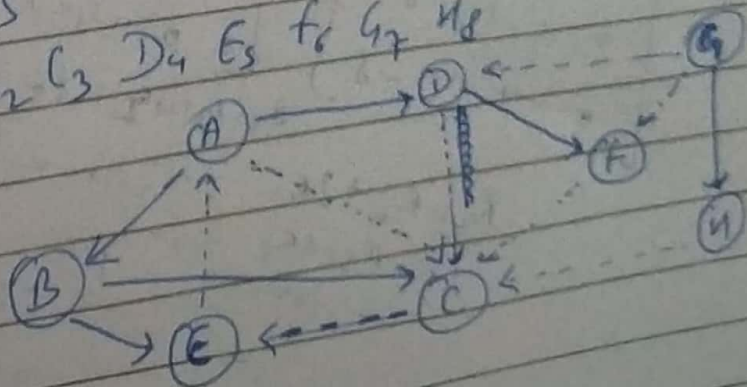 2 C3 D4 E5 F6 G7 H8
D G
A F
H
B C
E